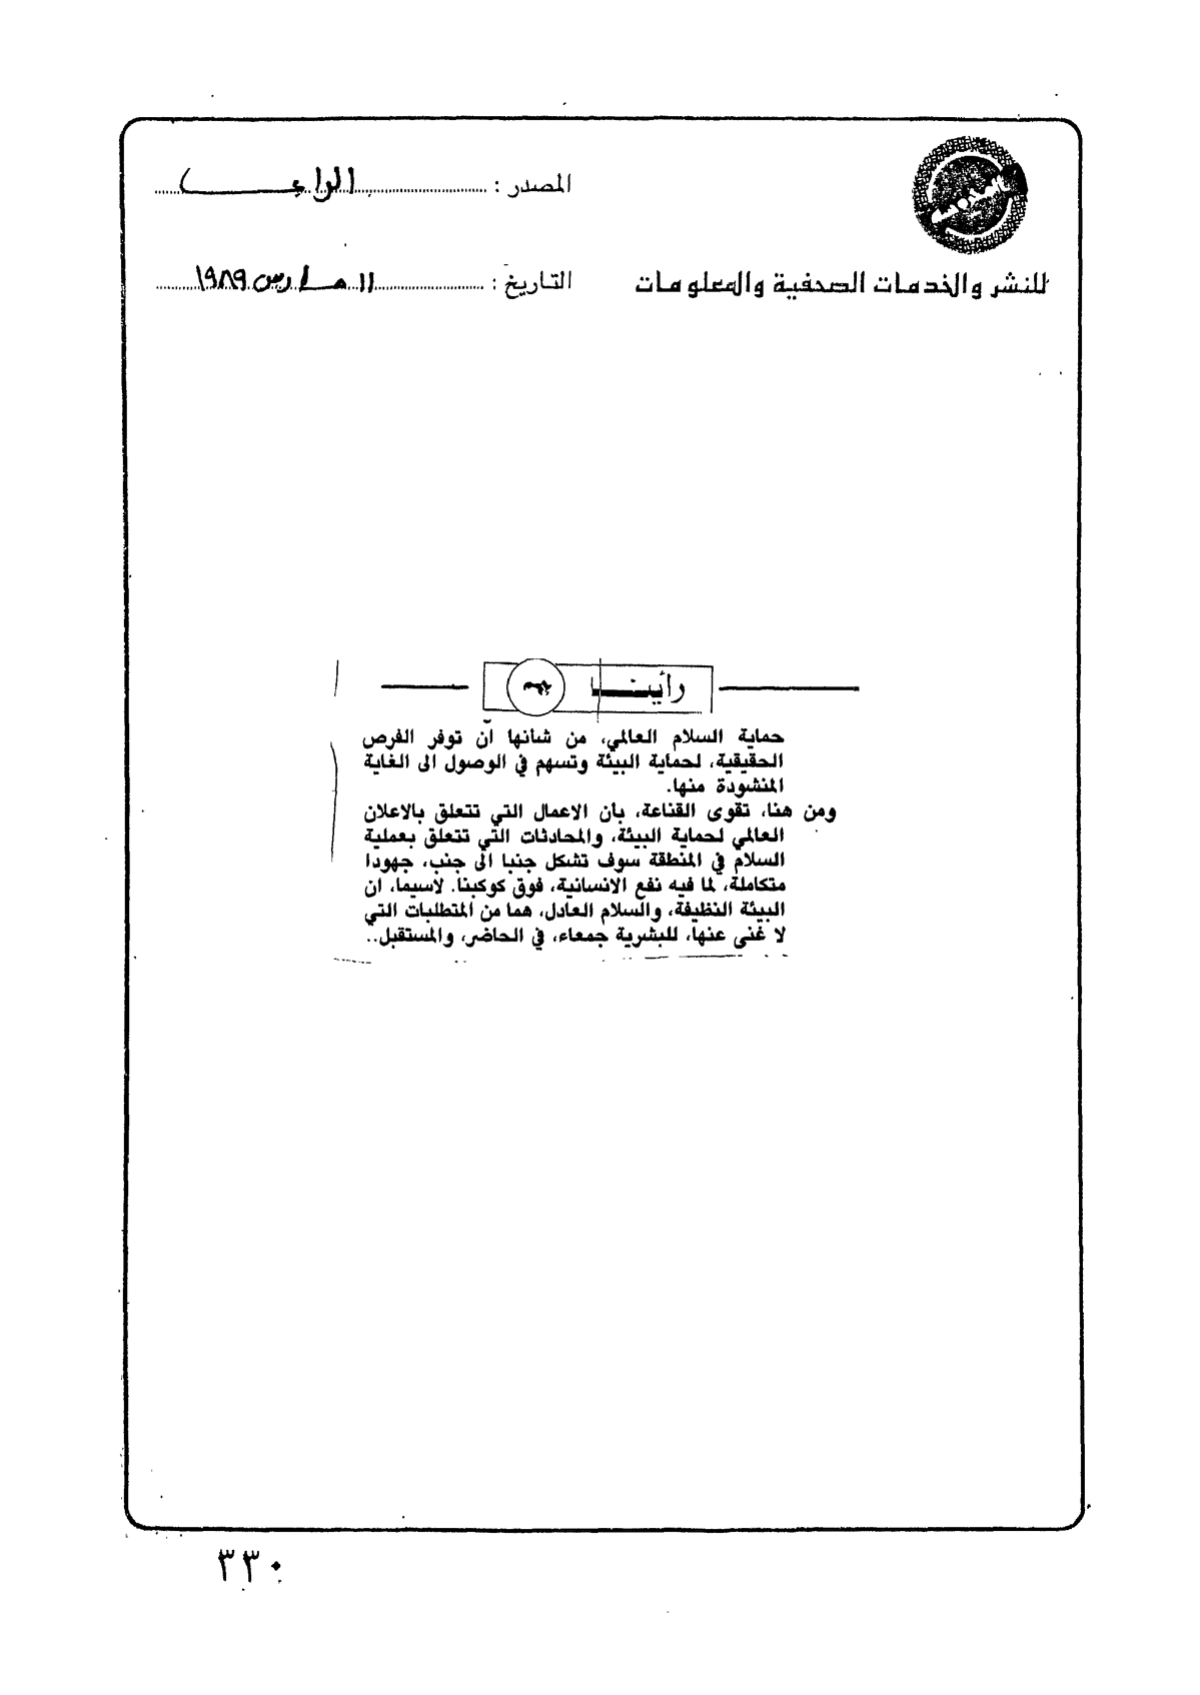 المصدر : الراي
للنشر والخدمات الصحفية والمعلومات
التاريخ : ١١ مارس ١٩٨٩
رأينا
حماية السلام العالمي، من شانها أن توفر الفرص
الحقيقية، لحماية البيئة وتسهم في الوصول الى الغاية
المنشودة منها.
ومن هنا، تقوى القناعة، بان الاعمال التي تتعلق بالاعلان
العالمي لحماية البيئة، والمحادثات التي تتعلق بعملية
السلام في المنطقة سوف تشكل جنبا الى جنب، جهودا
متكاملة، لما فيه نفع الانسانية، فوق كوكبنا. لاسيما، ان
البيئة النظيفة، والسلام العادل، هما من المتطلبات التي
لا غنى عنها، للبشرية جمعاء، في الحاضر، والمستقبل..
٣٣٠